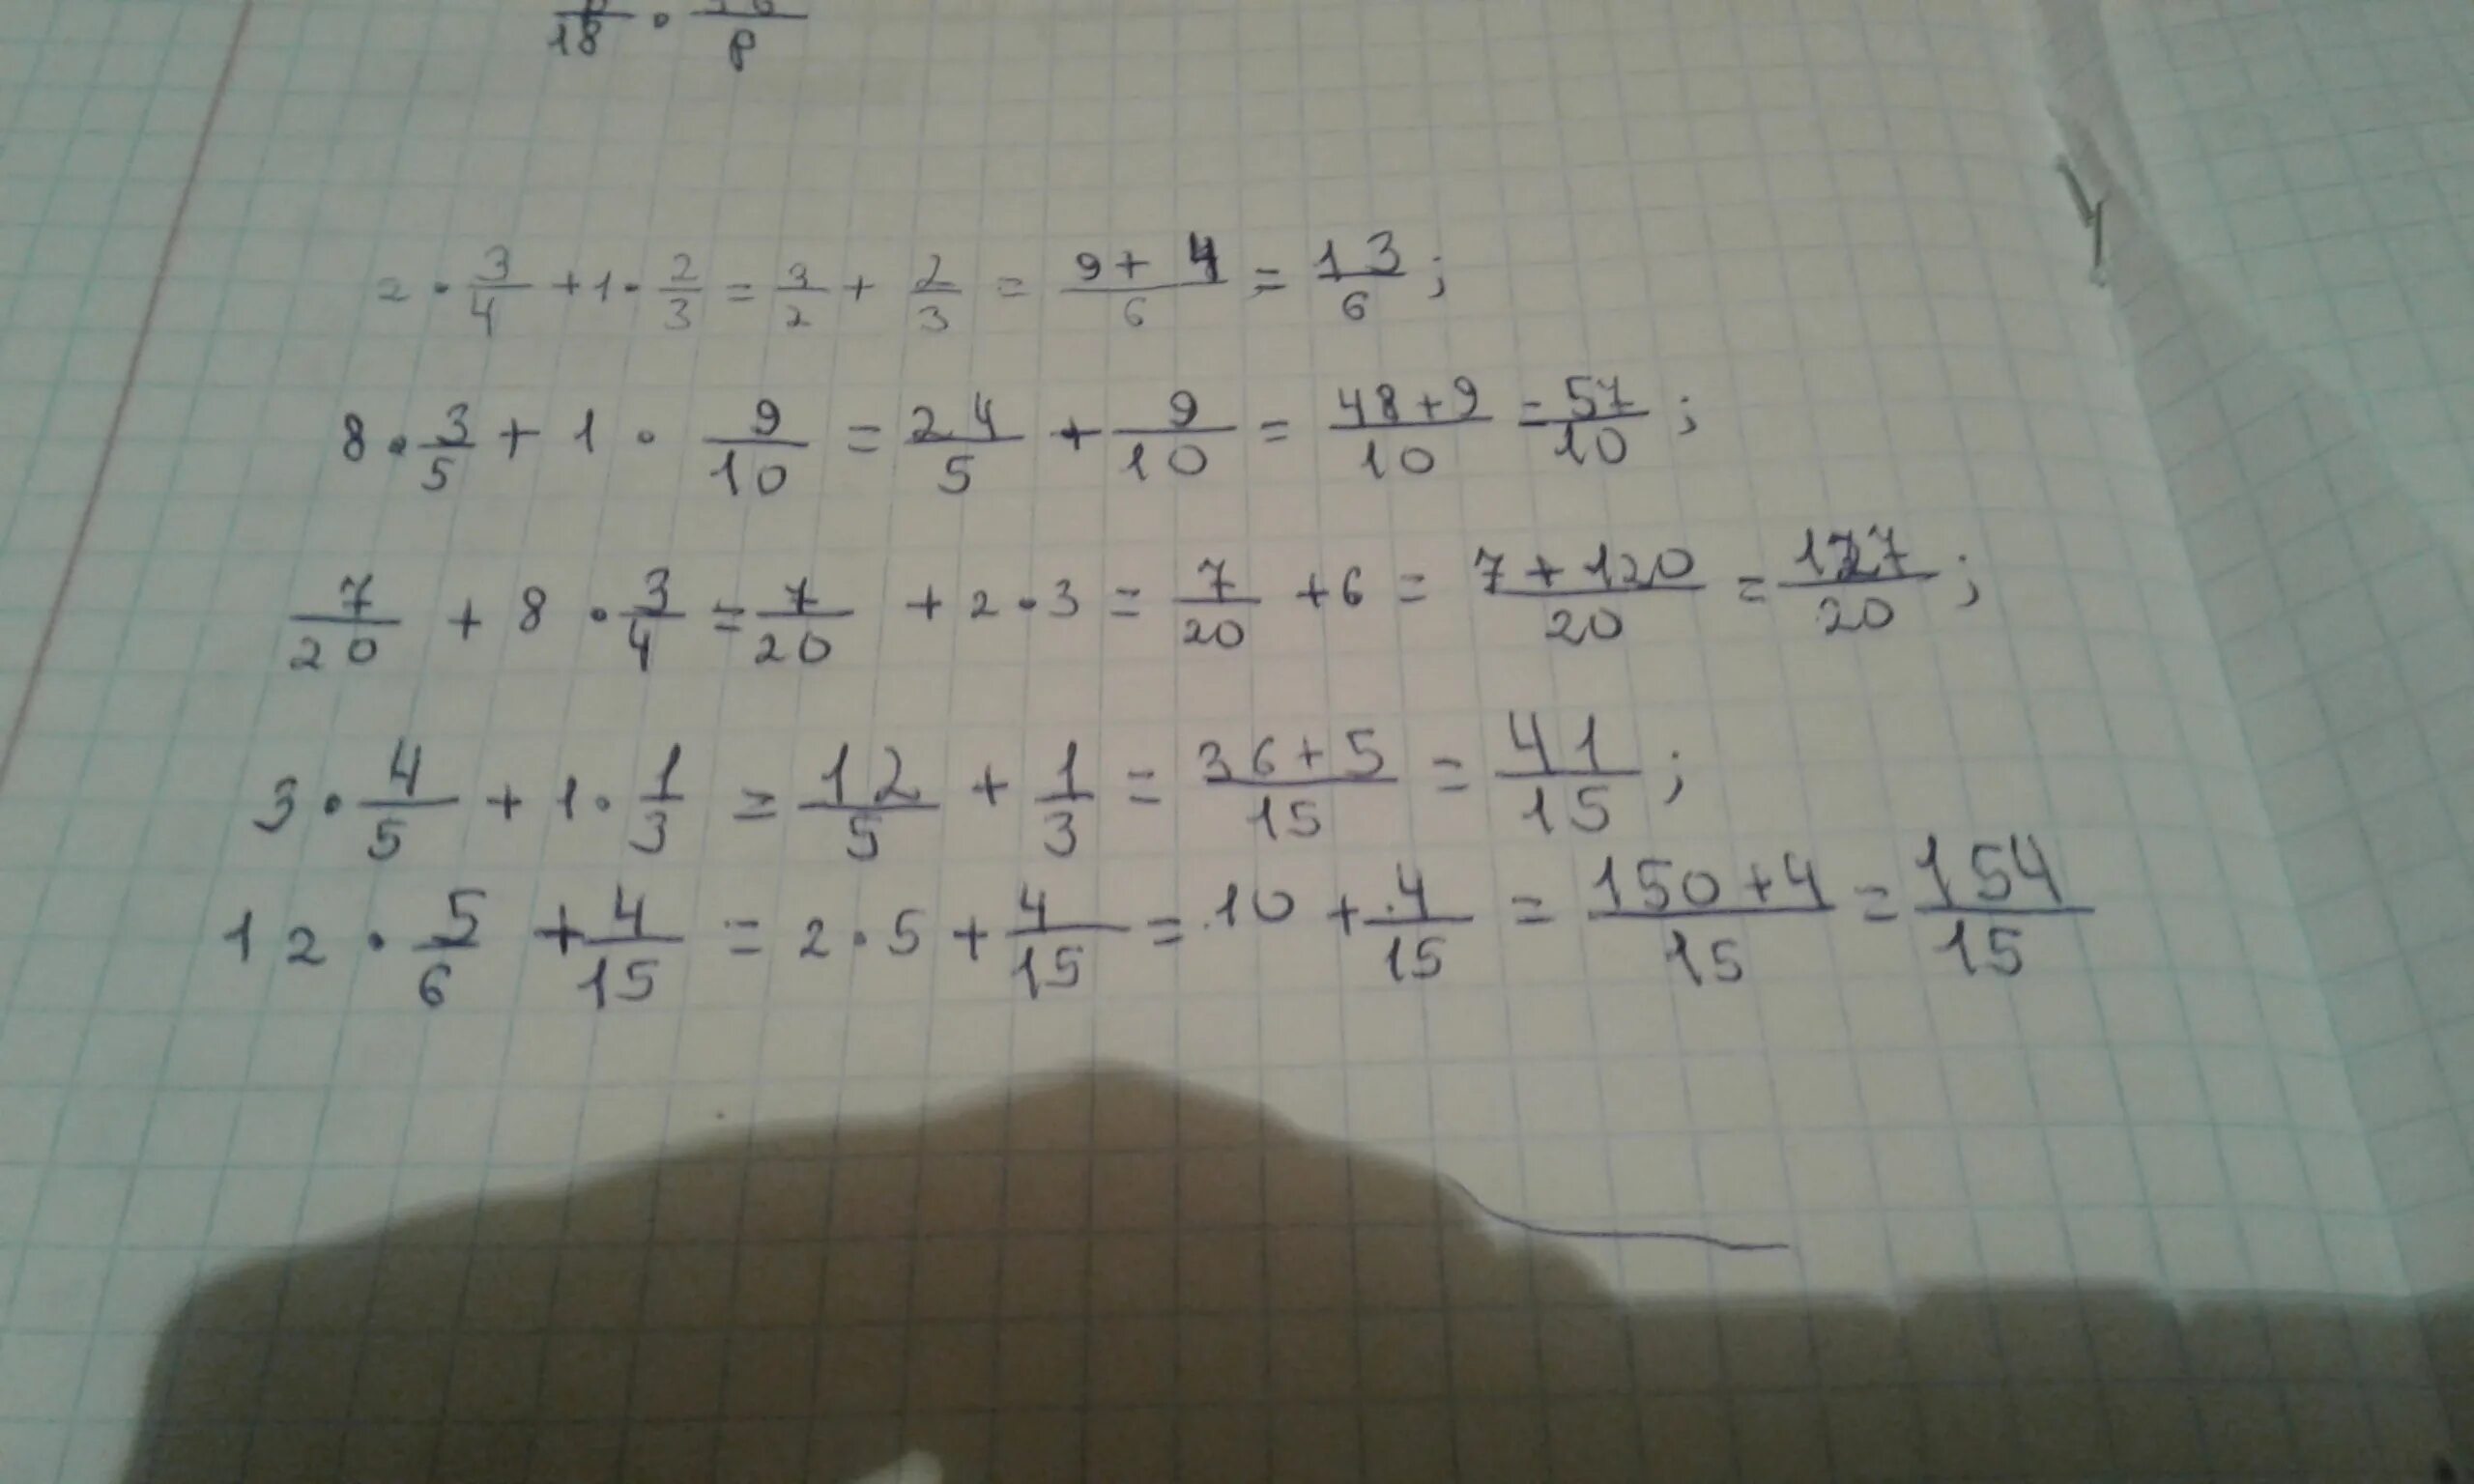 18 · 8
2 · 3/4 + 1 · 2/3 = 3/2 + 2/3 = (9 + 4)/6 = 13/6;
8 · 3/5 + 1 · 9/10 = 24/5 + 9/10 = (48 + 9)/10 = 57/10;
7/20 + 8 · 3/4 = 7/20 + 2 · 3 = 7/20 + 6 = (7 + 120)/20 = 127/20;
3 · 4/5 + 1 · 1/3 = 12/5 + 1/3 = (36 + 5)/15 = 41/15;
12 · 5/6 + 4/15 = 2 · 5 + 4/15 = 10 + 4/15 = (150 + 4)/15 = 154/15